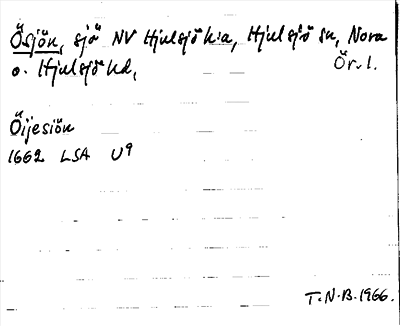 Ösjön, sjö NV Hjulsjö k:a, Hjulsjö sn, Nora
o. Hjulsjö hd, Ör. l.
Öijesiön
1662 LSA U9
T.N.B. 1966.